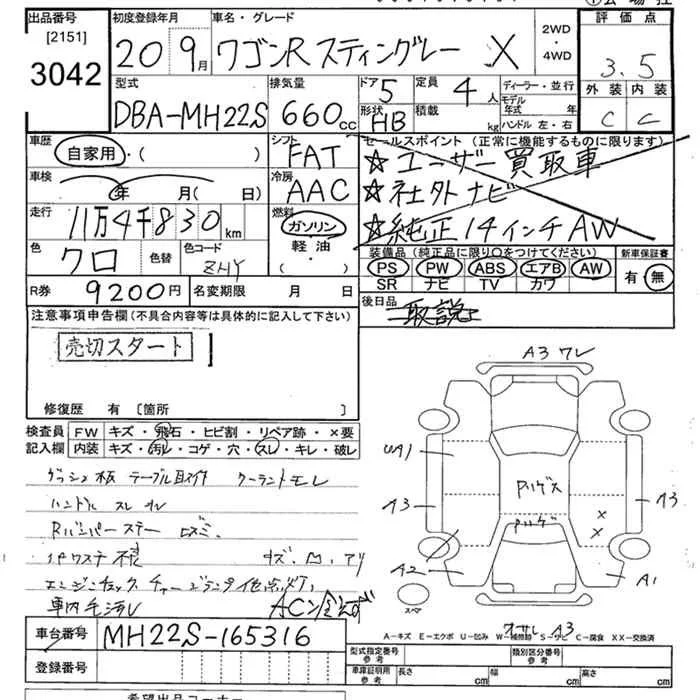 出品番号 初度登録年月 車名・グレード 2WD・4WD 評価点
[2151]
3042
20 9月 ワゴンR スティングレー X 3.5
型式 排気量 ドア 5 定員 4人 ディーラー・並行 外装 内装
DBA-MH22S 660cc 形状 HB 積載 kg モデル年式 年 ハンドル 左・右 C C
車歴 自家用・( ) シフト FAT セールスポイント (正常に機能するものに限ります)
☆ユーザー買取車
車検 年 月( 日) 冷房 AAC ☆社外ナビ
走行 11万4千830km 燃料 ガソリン・軽油・( ) ☆純正14インチAW
色 クロ 色替 色コード ZHY 装備品 (純正品に限り○をつけてください) 新車保証書
PS PW ABS エアB AW 有 無
SR ナビ TV カワ
R券 9200円 名変期限 月 日 後日品 取説
注意事項申告欄 (不具合内容等は具体的に記入して下さい)
売切スタート
修復歴 有 [箇所 ]
検査員記入欄 FW キズ・飛石・ヒビ割・リペア跡・×要
内装 キズ・汚レ・コゲ・穴・スレ・キレ・破レ
A3 ワレ
UA1
A3
A3
Pハゲ
A2
A1
スペア
ダッシュ板 テーブル取付 クーラントモレ
ハンドル スレ
Rバンパーステー
キズ・凹・アリ
車内毛汚レ
A3
A-キズ E-エクボ U-凹み W-補修跡 S-サビ C-腐食 XX-交換済
車台番号 MH22S-165316 型式指定番号 参考 類別区分番号 参考
登録番号 車庫証明用 参考 長さ cm 幅 cm 高さ cm
希望出品コーナー